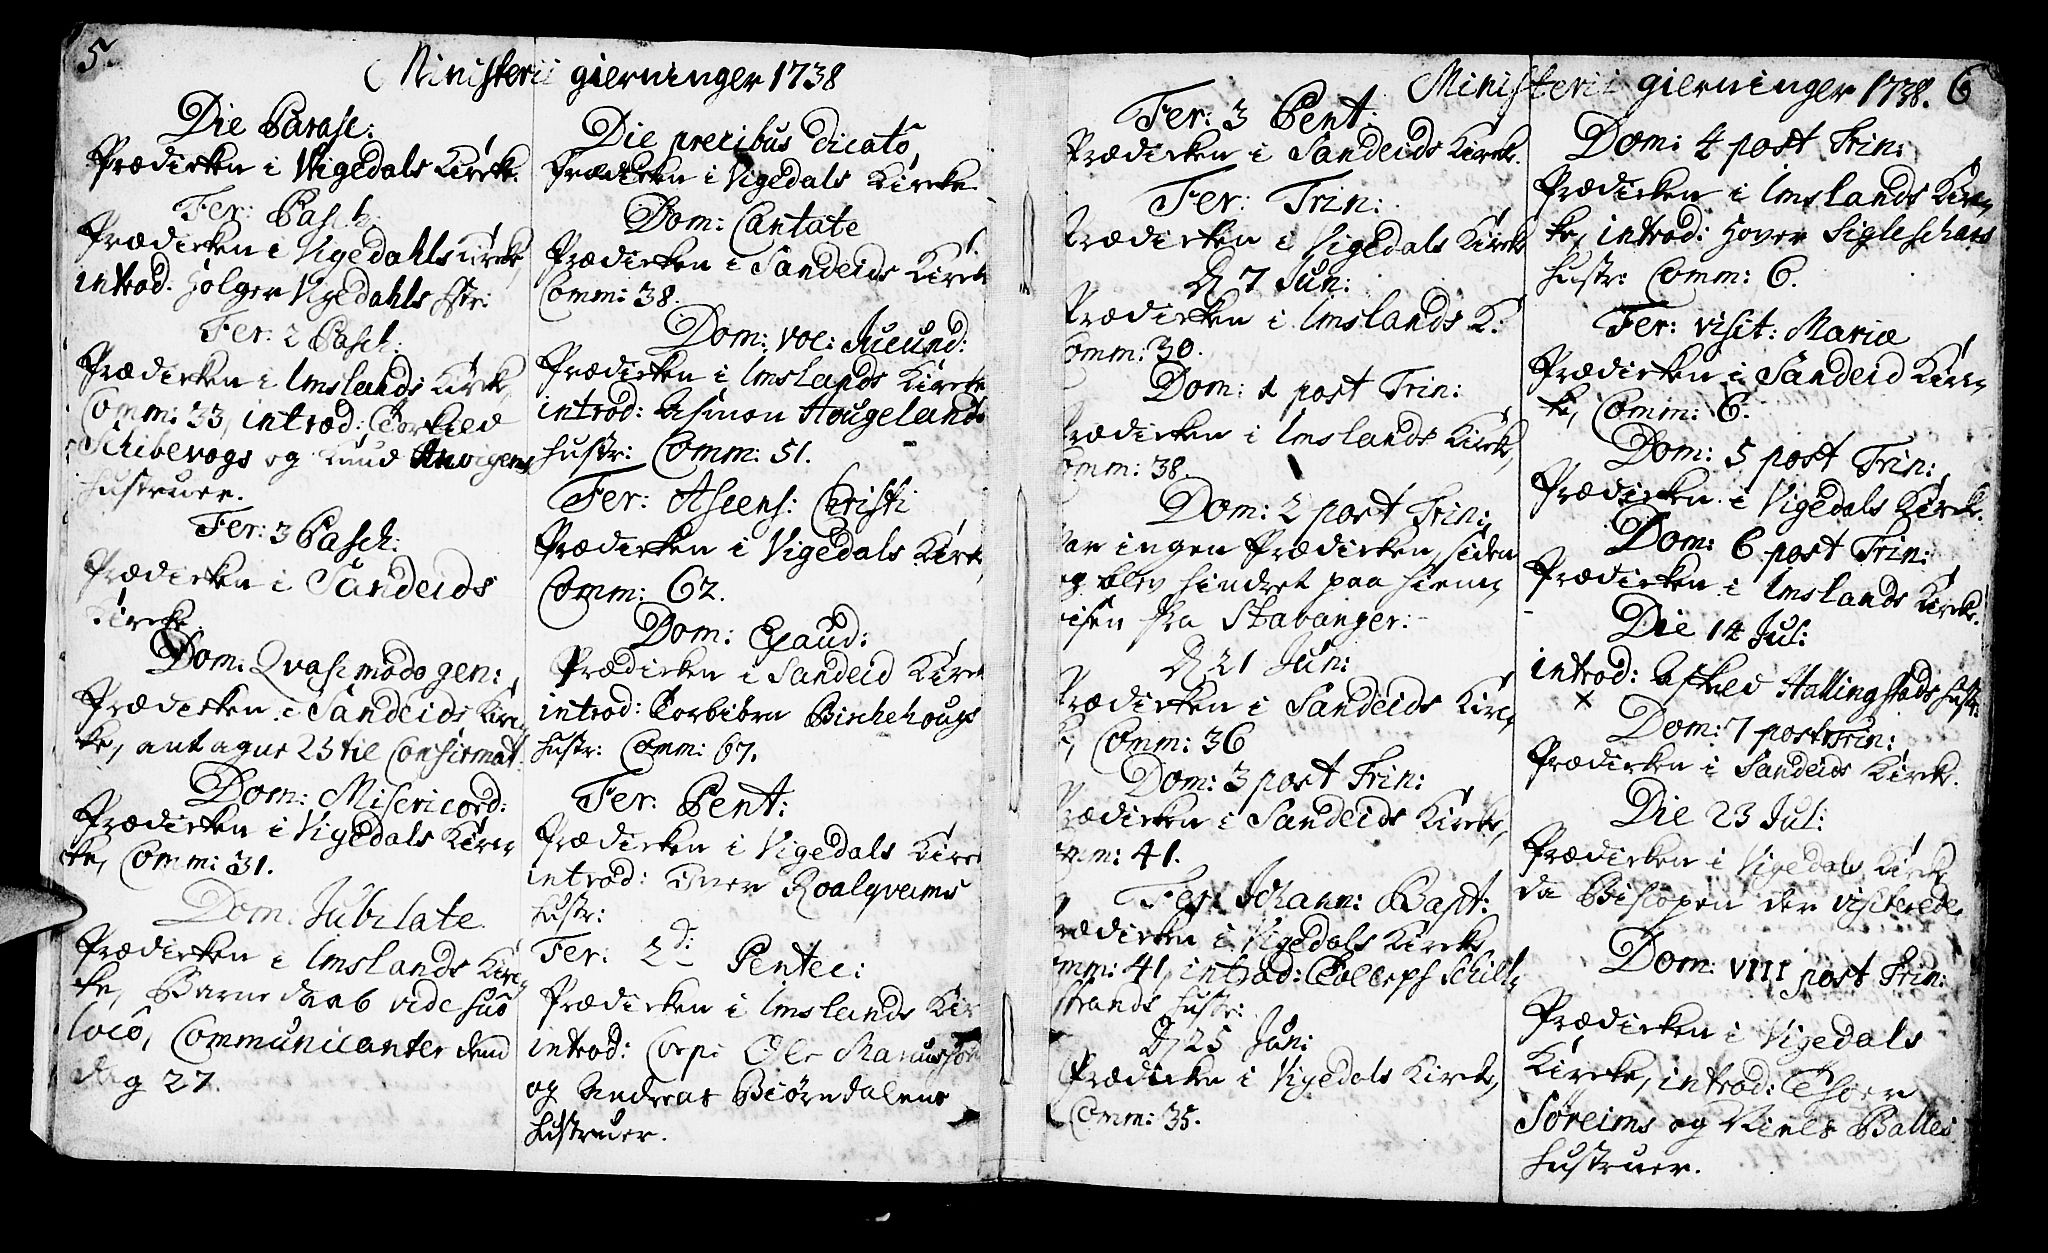 5.
Ministerii gierninger 1738
Die Parasc:
Prædicken i Vigedals Kircke.
Fer: Pasch:
Prædicken i Vigedahls Kircke
introd. Holger Vigedahls Hstr:
Fer: 2 Pasch:
Prædicken i Imslands Kircke,
Comm: 33, introd: Torkild
Schibevogs og Knud
Hustruer.
Fer: 3 Pasch:
Prædicken i Sandeids
Kircke.
Dom: Qvasimodo gen:
Prædicken i Sandeids Kirc-
ke, antagne 23 til Confirmat:
Dom: Misericord:
Prædicken i Vigedals Kirc-
ke, Comm: 31.
Dom. Jubilate
Prædicken i Imslands Kirc-
ke, Barne daab vide suô
locô, Communicanter dend
dag 27.
Die precibus dicatô
Prædicken i Vigedals Kircke.
Dom: Cantate
Prædicken i Sandeids Kircke
Comm: 38.
Dom: voc: Jucund:
Prædicken i Imslands Kircke
introd: Asmon Hougelands
Hustr: Comm: 51.
Fer: Ascens: Christi
Prædicken i Vigedals Kircke,
Comm: 62.
Dom: Exaud:
Prædicken i Sandeid Kircke
introd: Torbiörn Birchehougs
Hustr: Comm: 67.
Fer: Pent:
Prædicken i Vigedals Kircke
introd: Iver Roalqvams
Hustr:
Fer: 2d: Pentec:
Prædicken i Imslands Kir
introd: Corpr Ole
og Andreas Biörndalens
Hustruer.
Ministerii gierninger 1738. 6
Fer: 3 Pent:
Prædicken i Sandeids Kircke.
Fer: Trin:
Prædicken i Vigedals Kircke
D 7 Jun:
Prædicken i Imslands K:
Comm: 30.
Dom: 1 post Trin:
Prædicken i Imslands Kircke,
Comm: 38.
Dom: 2 post Trin:
Var ingen Prædicken, siden
og blev hindret paa Hiem-
isen fra Stavanger:
D 21 Jun:
Prædicken i Sandeids Kirc-
ke, Comm: 36
Dom: 3 post Trin:
Prædicken i Sandeids Kircke,
Comm: 41.
Fer: Johann: Bapt:
Prædicken i Vigedals Kircke
Comm: 41, introd: Tollerps Schill-
strands Hustr:
D 25 Jun:
Prædicken i Vigedals Kircke,
Comm: 35.
Dom: 4 post Trin:
Prædicken i Imslands Kirc-
ke, introd: Hover
Hustr: Comm: 6.
Fer: visit: Mariæ
Prædicken i Sandeid Kirc-
ke, Comm: 6.
Dom: 5 post Trin:
Prædicken i Vigedals Kircke.
Dom: 6 post Trin:
Prædicken i Imslands Kircke.
Die 14 Jul:
introd: Hallingstads Hustr:
Dom: 7 post Trin:
Prædicken i Sandeids Kircke.
Die 23 Jul:
Prædicken i Vigedals Kircke
da Biscopen der visiterede.
Dom: VIII post Trin:
Prædicken i Vigedals
Kircke, introd:
Söreims og Niels Baltes
Hustruer.